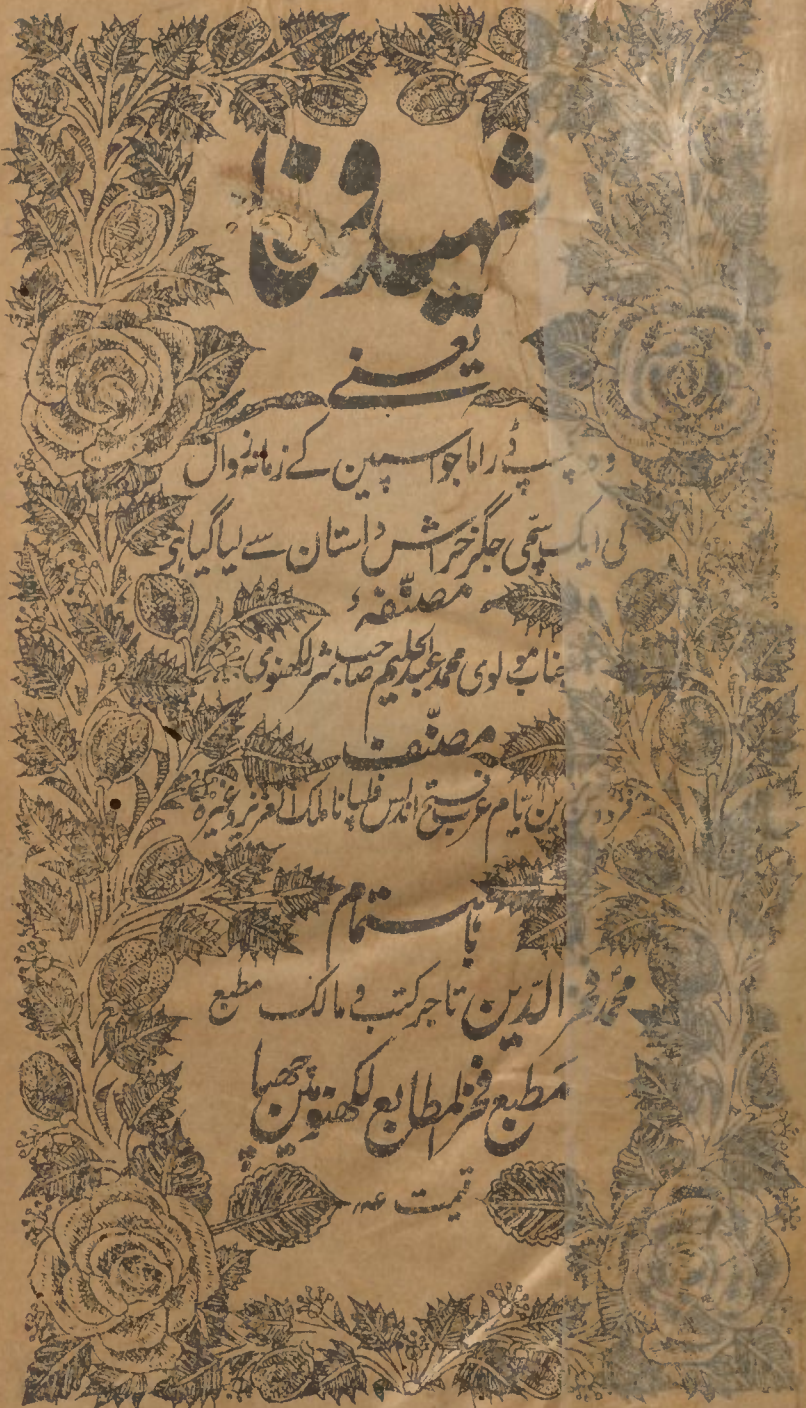 شہید وفا
یعنے
وہ دلچسپ ڈراما جو اسپین کے زمانہ زوال
کی ایک سچّی جگر خراش داستان سے لیا گیا ہی
مصنّفہٴ
جناب مولوی محمد عبدالحلیم صاحب شرر لکھنوی
مصنّف
فردوس بریں ایّام عرب فتح اندلس فلپانا ملک العزیز وغیرہ
باہتمام
محمد فخرالدّین تاجر کتب و مالک مطبع
مطبع فخرالمطابع لکھنؤ مین چھپا
قیمت عہ